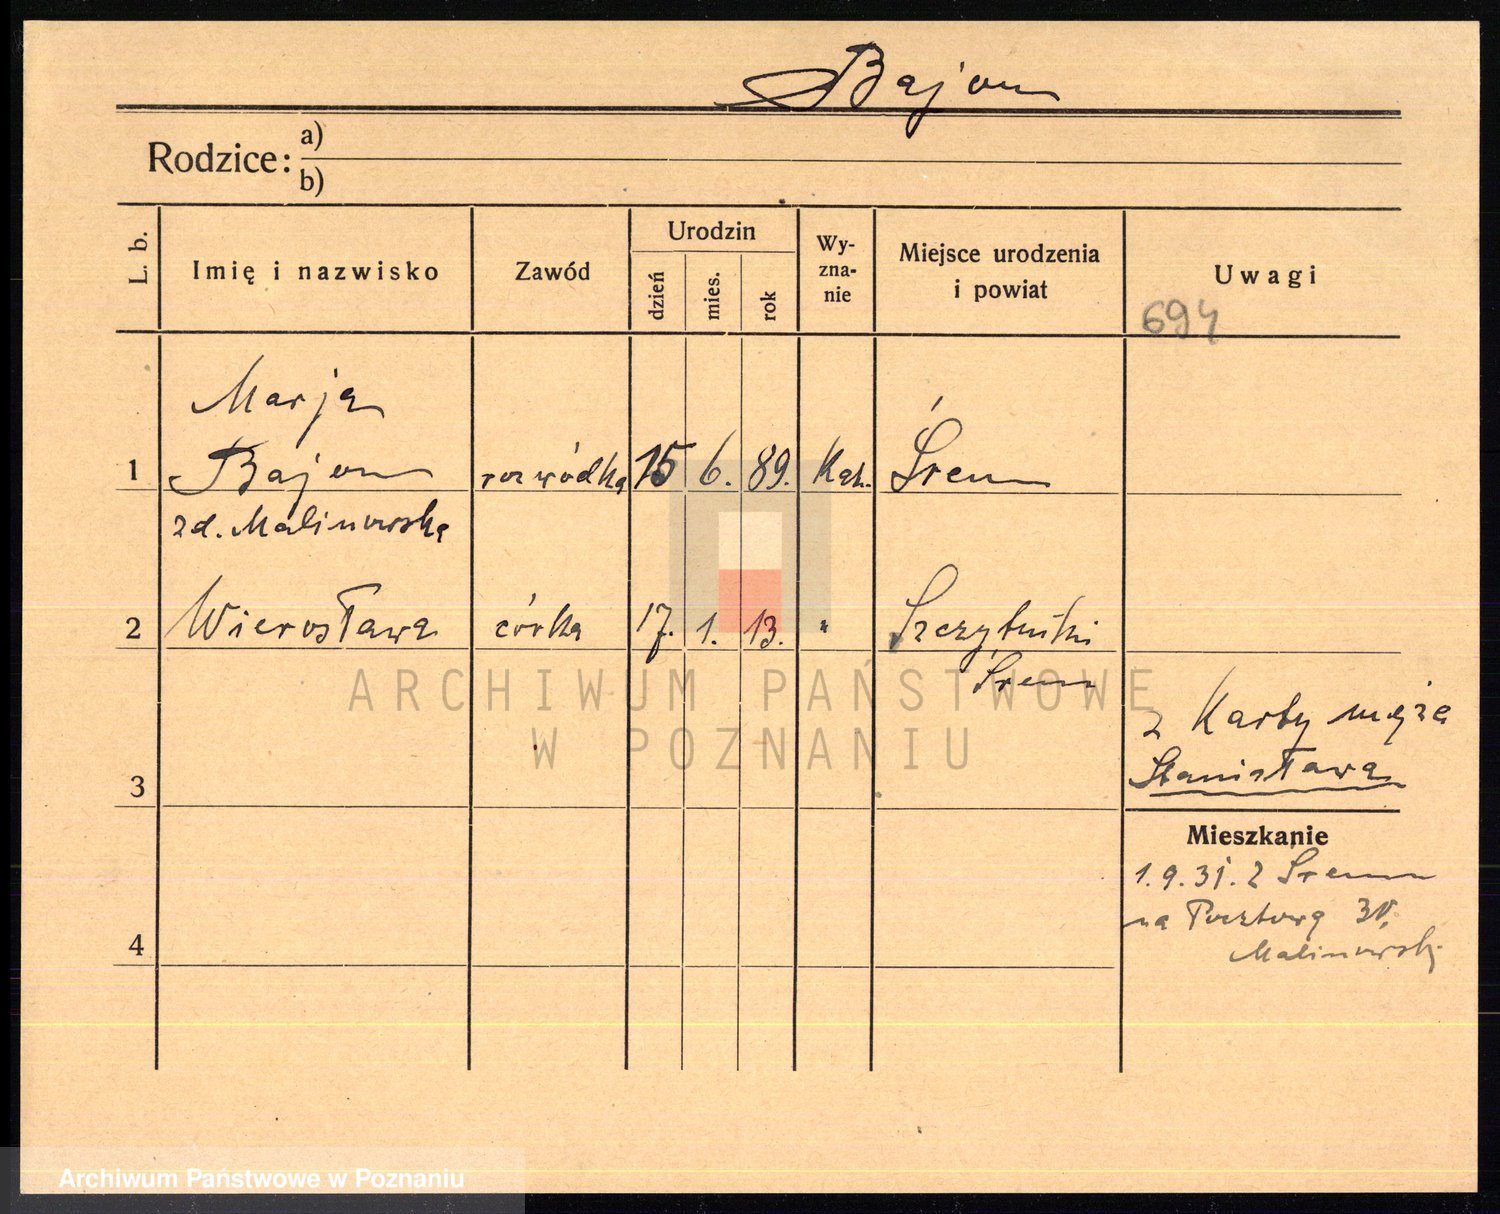 Bajon
Rodzice:
a)
b)
L. b.
Imię i nazwisko
Zawód
Urodzin
dzień
mies.
rok
Wy-
zna-
nie
Miejsce urodzenia
i powiat
Uwagi
694
Marja
1 Bajon rozwódka 15 6. 89. Kat. Śrem
zd. Malinowska
2 Wierosława córka 17. 1. 13. "
Śrem
z Karty męża
Stanisława
3
Mieszkanie
1.9.31. z Śremu
na Pocztową 30,
4
ARCHIWUM PAŃSTWOWE
W POZNANIU
Archiwum Państwowe w Poznaniu